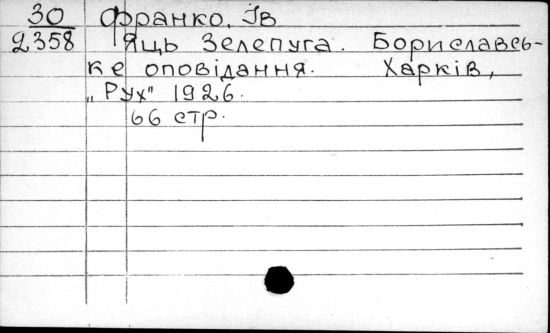 30 Франко, Ів
2358 Яць Зелепуга. Бориславсь-
ке оповідання. Харків,
„Рух" 1926.
66 стр.